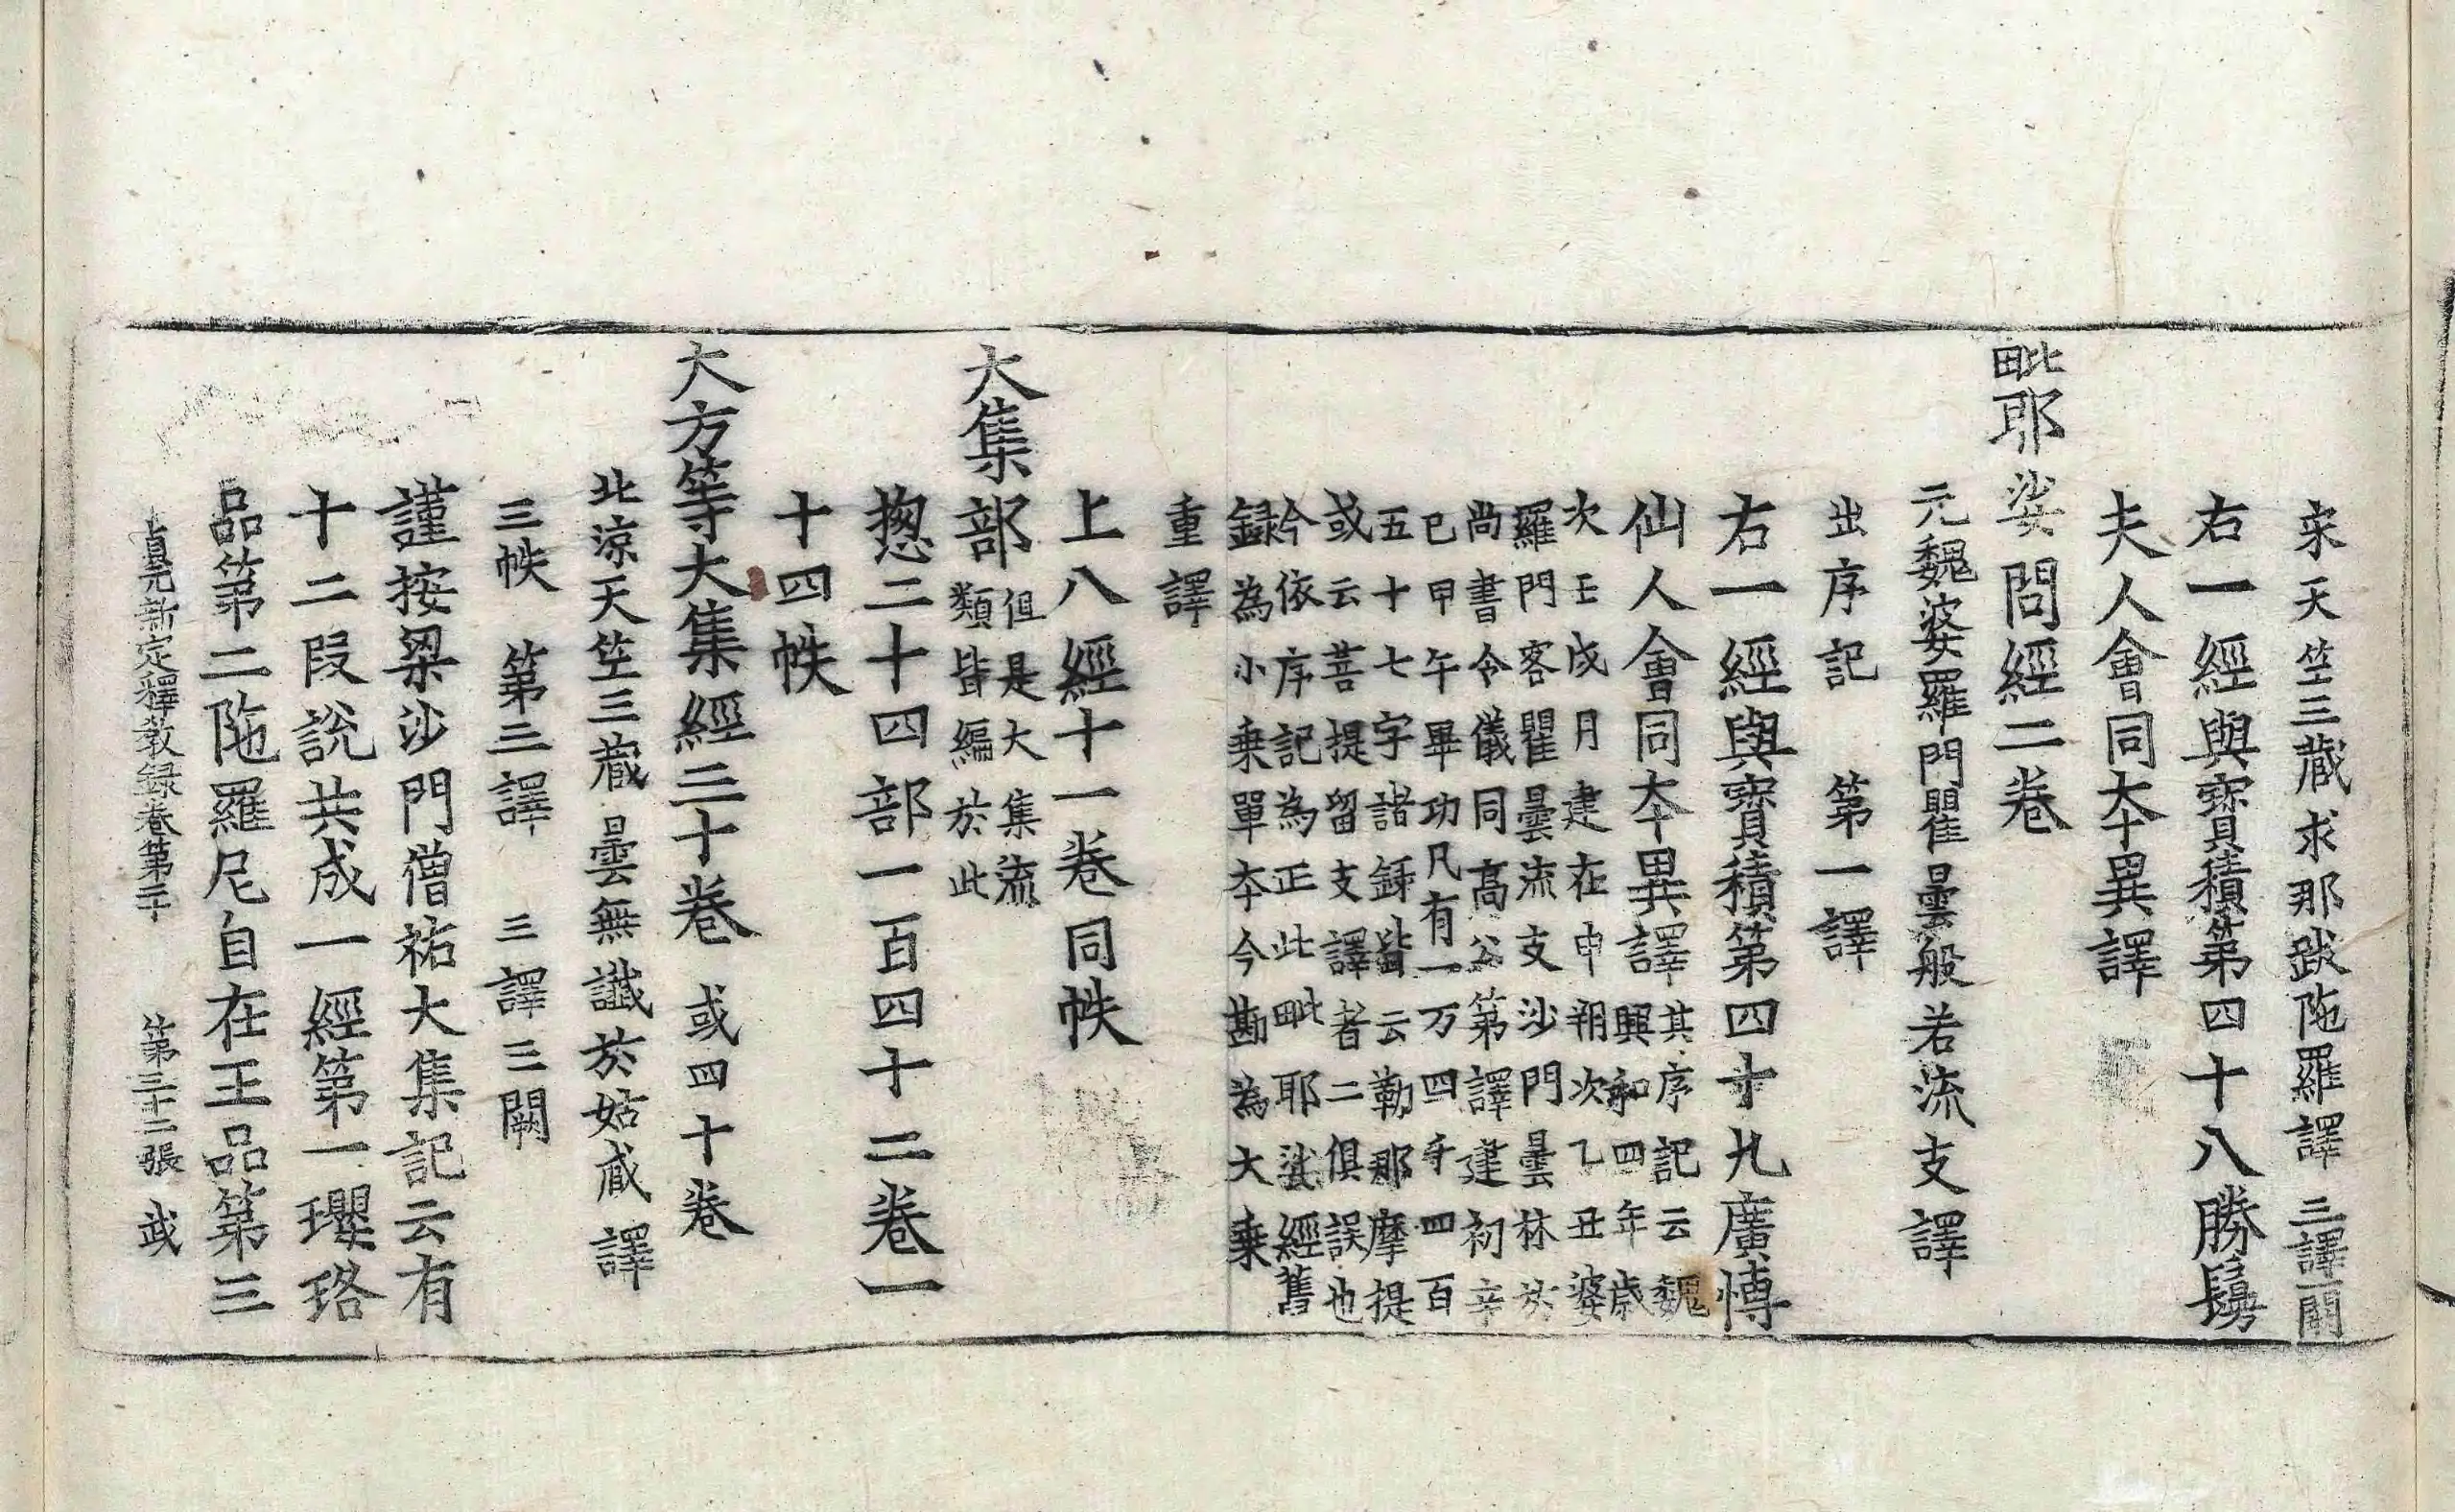 宋天竺三藏求那跋陁羅譯三譯一闕
右一經與寶積第四十八勝鬘
夫人會同夲異譯
毗耶娑問經二卷
元魏婆羅門瞿曇般若流支譯
出序記 第一譯
右一經與寶積第四十九廣愽
仙人會同夲異譯其序記云魏
興和四年歲
次壬戌月建在申朔次乙丑婆
羅門客瞿曇流支沙門曇林於
尚書令儀同髙公第譯建初辛
巳甲午畢功凡有一万四千四百
五十七字諸錄皆云勒那摩提
或云菩提留支譯者二俱誤也
今依序記為正此毗耶娑經舊
録為小乗單夲今勘為大乗
重譯
上八經十一卷同帙
大集部但是大集流
類皆編於此
揔二十四部一百四十二卷一
十四帙
大方等大集經三十卷或四十卷
北涼天竺三藏曇無讖於姑臧譯
三帙 第三譯 三譯三闕
謹按梁沙門僧祐大集記云有
十二叚說共成一經第一瓔珞
品第二陁羅尼自在王品第三
貞元新定釋教録卷第二十 第三十二張 武